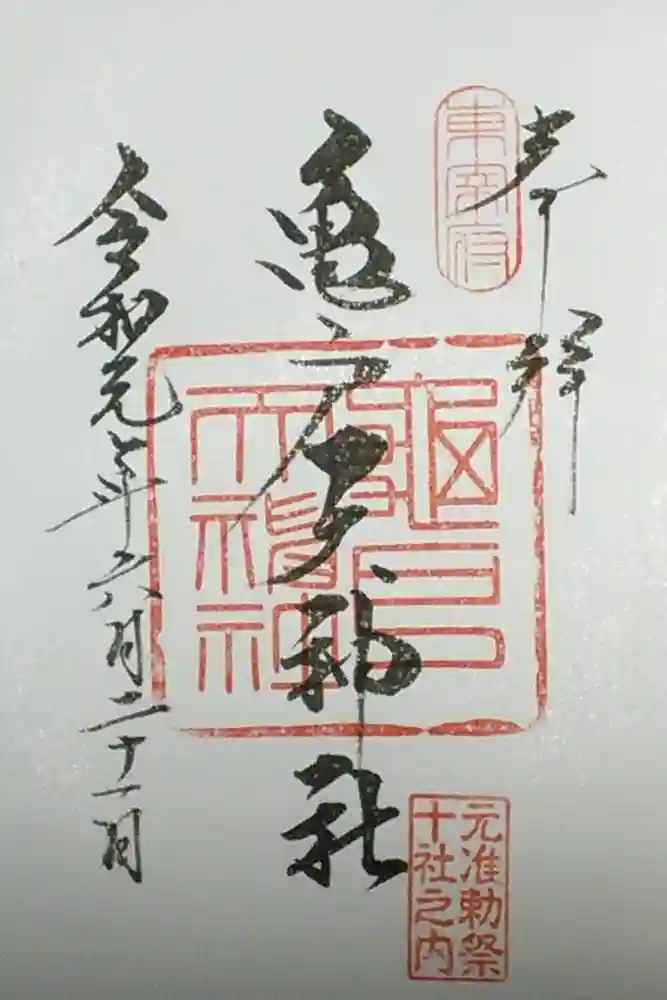 奉拝
東宰府
亀戸天神社
令和元年六月二十一日
元准勅祭
十社之内